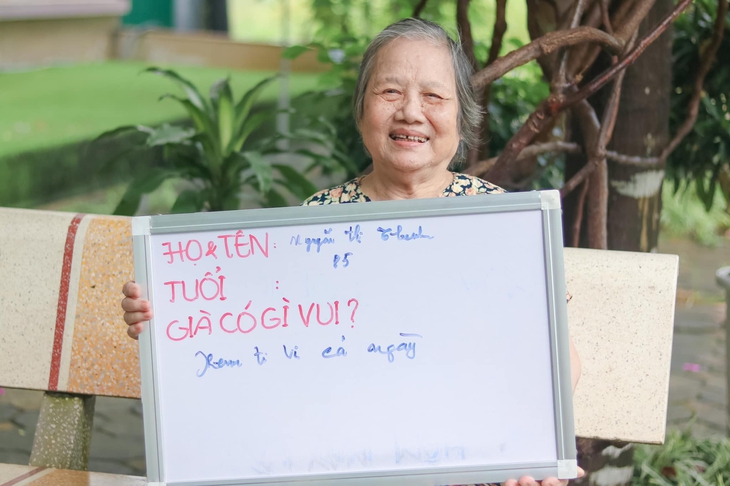 HỌ & TÊN: Nguyễn Thị Thanh
TUỔI : 85
GIÀ CÓ GÌ VUI?
Xem ti vi cả ngày